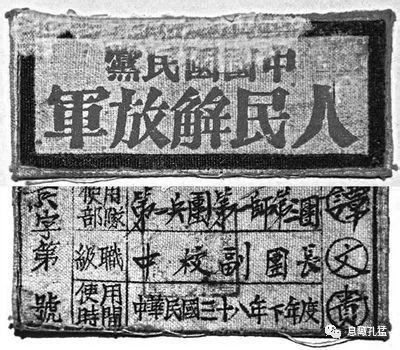 中國國民黨
人民解放軍
字第 號
使用部隊 第一兵團第一師第二團
級職 中校副團長
使用時間 中華民國三十八年下年度
譚文
孔猛